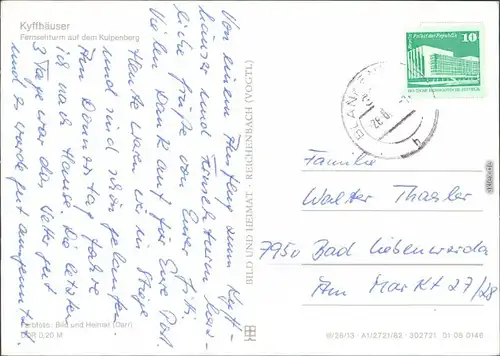 Kyffhäuser
Fernsehturm auf dem Kulpenberg
Von einem Ausflug zum Kyff-
häuser und Fernsehturm herz-
liche Grüße von Eurer
Vielen Dank auf für Eure Post.
Heute waren wir in Stiege
und sind schön gelaufen.
Am Donnerstag fahre
ich nach Hause. Die letzten
3 Tage war das Wetter gut
und es wurde gut
Farbfoto: Bild und Heimat (Darr)
DDR 0,20 M
BILD UND HEIMAT · REICHENBACH (VOGTL)
Palast der Republik
10
26.8.
h
Familie
Walter Thaaler
7950 Bad Liebenwerda
Am Markt 27/28
III/26/13 · A1/2721/82 · 302721 01 08 0146